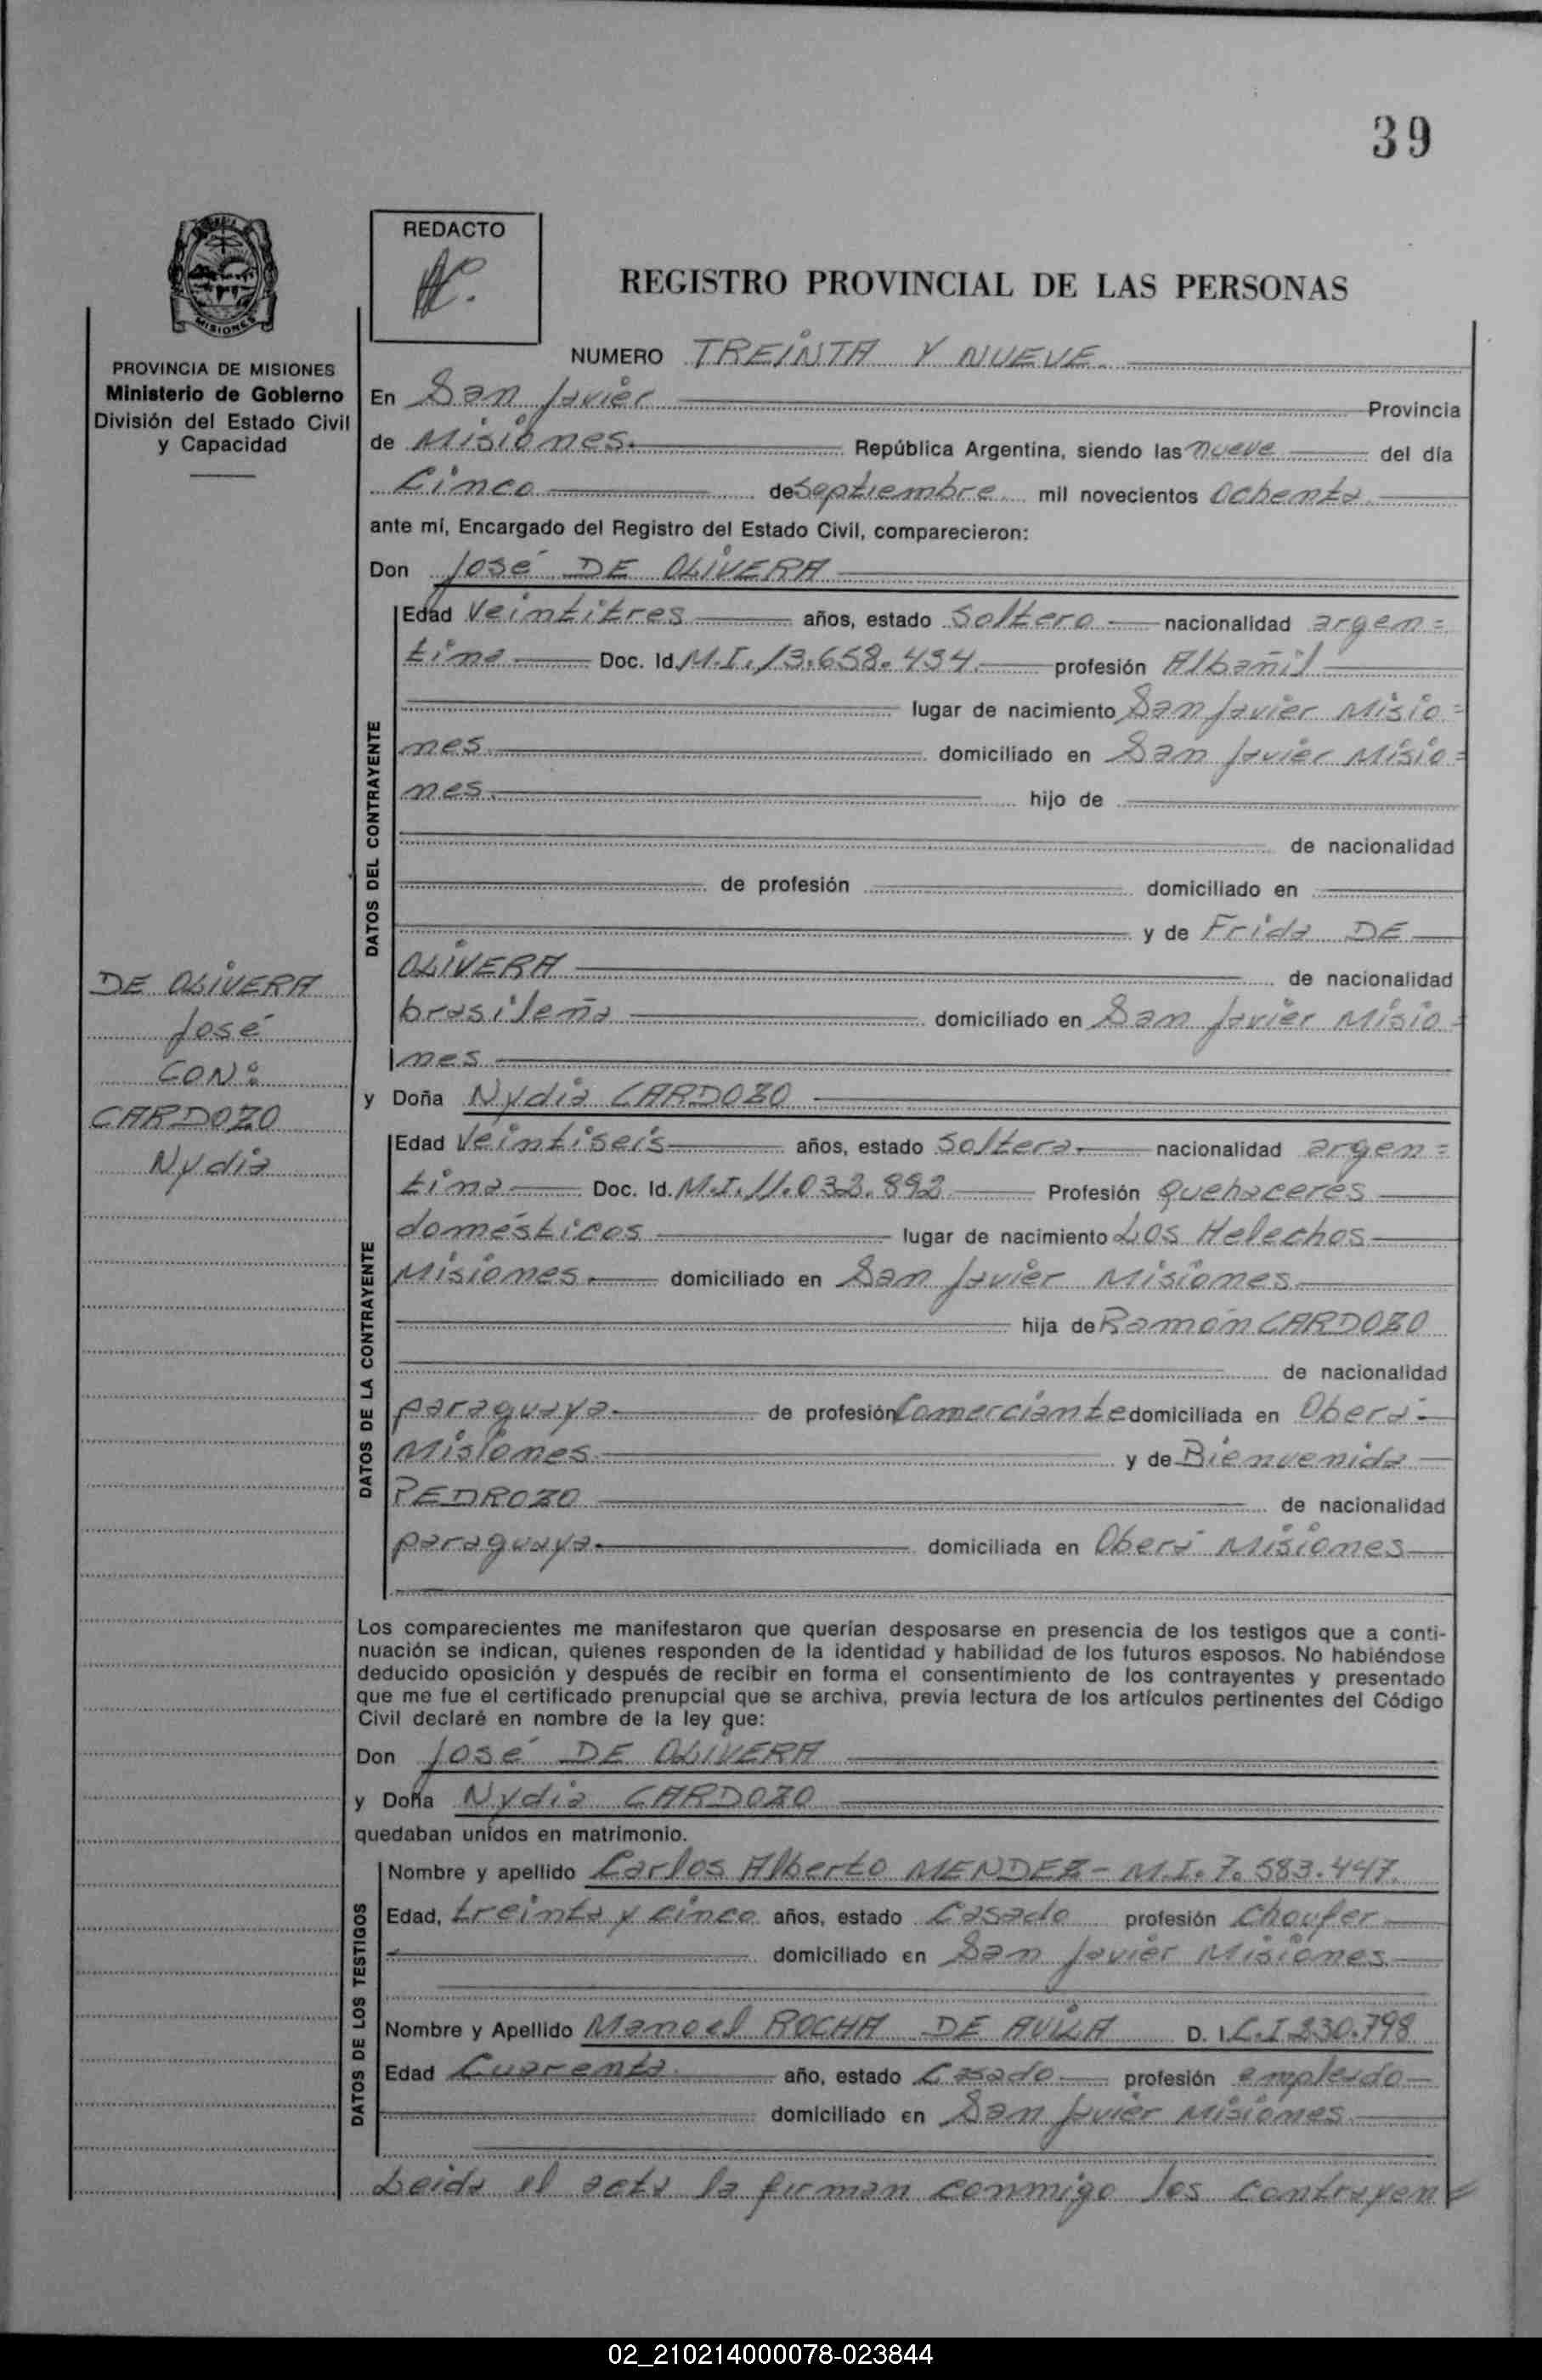 39
REDACTO
REGISTRO PROVINCIAL DE LAS PERSONAS
MISIONES
PROVINCIA DE MISIONES
Ministerio de Gobierno
División del Estado Civil
y Capacidad
NUMERO TREINTA Y NUEVE
En San Javier Provincia
de Misiones. República Argentina, siendo las nueve del día
Cinco de Septiembre mil novecientos Ochenta
ante mí, Encargado del Registro del Estado Civil, comparecieron:
Don José DE OLIVERA
DATOS DEL CONTRAYENTE
Edad Veintitres años, estado Soltero nacionalidad argen=
tina Doc. Id. M.I. 13.658.434. profesión Albañil
lugar de nacimiento San Javier Misio=
nes domiciliado en San Javier Misio=
nes. hijo de
de nacionalidad
de profesión domiciliado en
y de Frida DE
OLIVERA de nacionalidad
brasileña domiciliado en San Javier Misio=
nes
DE OLIVERA
José
CON:
CARDOZO
Nydia
y Doña Nydia CARDOZO
DATOS DE LA CONTRAYENTE
Edad Veintiseis años, estado Soltera. nacionalidad argen=
tina Doc. Id. M.I. 11.032.892 Profesión quehaceres
domésticos lugar de nacimiento Los Helechos
Misiones. domiciliado en San Javier Misiones
hija de Ramón CARDOZO
de nacionalidad
paraguaya. de profesión Comerciante domiciliada en Oberá
Misiones y de Bienvenida
PEDROZO de nacionalidad
paraguaya. domiciliada en Oberá Misiones
Los comparecientes me manifestaron que querían desposarse en presencia de los testigos que a conti-
nuación se indican, quienes responden de la identidad y habilidad de los futuros esposos. No habiéndose
deducido oposición y después de recibir en forma el consentimiento de los contrayentes y presentado
que me fue el certificado prenupcial que se archiva, previa lectura de los artículos pertinentes del Código
Civil declaré en nombre de la ley que:
Don José DE OLIVERA
y Doña Nydia CARDOZO
quedaban unidos en matrimonio.
DATOS DE LOS TESTIGOS
Nombre y apellido Carlos Alberto MENDEZ - M.I. 7.583.447.
Edad, treinta y cinco años, estado Casado profesión Choufer
domiciliado en San Javier Misiones
Nombre y Apellido Manoel ROCHA DE AVILA D. I. C.I 230.798
Edad Cuarenta año, estado Casado profesión empleado
domiciliado en San Javier Misiones
Leida el acta la firman conmigo los contrayen=
02_210214000078-023844